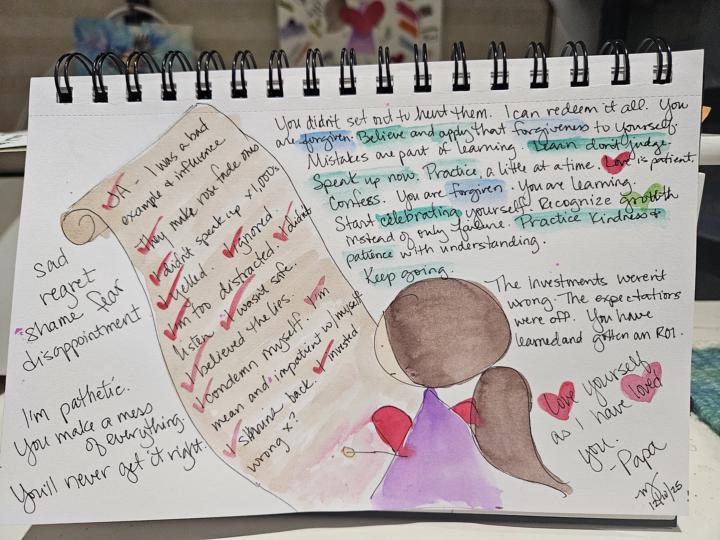 You didn't set out to hurt them. I can redeem it all. You
are forgiven. Believe and apply that forgiveness to yourself.
Mistakes are part of learning. Learn don't judge.
Speak up now. Practice, a little at a time. Love is patient.
Confess. You are forgiven. You are learning.
Start celebrating yourself. Recognize growth
instead of only failure. Practice Kindness &
patience with understanding.
Keep going.
The investments weren't
wrong. The expectations
were off. You have
learned and gotten an ROI.
Love yourself
as I have loved
you.
-Papa
I was a bad
example & influence
They make rose fade ones
I didn't speak up x1,000s
I yelled. I ignored. I didn't
I'm too distracted.
listen I wasn't safe.
I believed the lies.
I condemn myself. I'm
mean and impatient w/ myself
I shrink back. I invested
wrong x?
sad
regret
shame fear
disappointment
I'm pathetic.
You make a mess
of everything.
You'll never get it right.